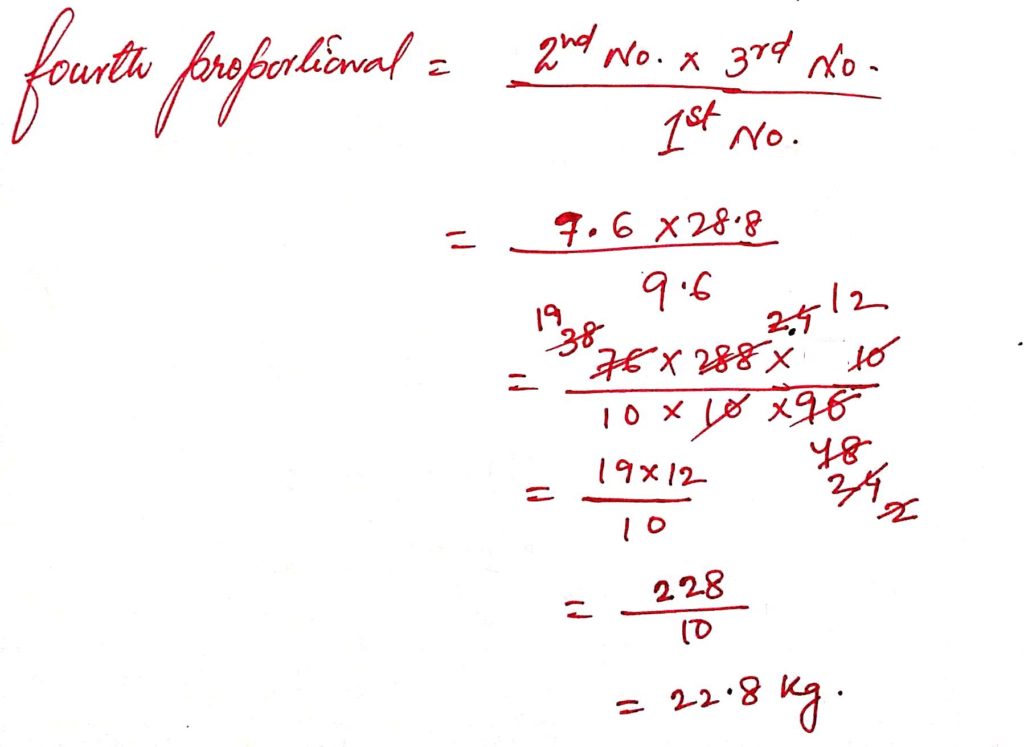 fourth proportional = 2nd No. x 3rd No.
1st No.
= 7.6 x 28.8
9.6
19 38 2.4 12
= 76 x 288 x 10
10 x 10 x 96
48
24
2
= 19x12
10
= 228
10
= 22.8 kg.